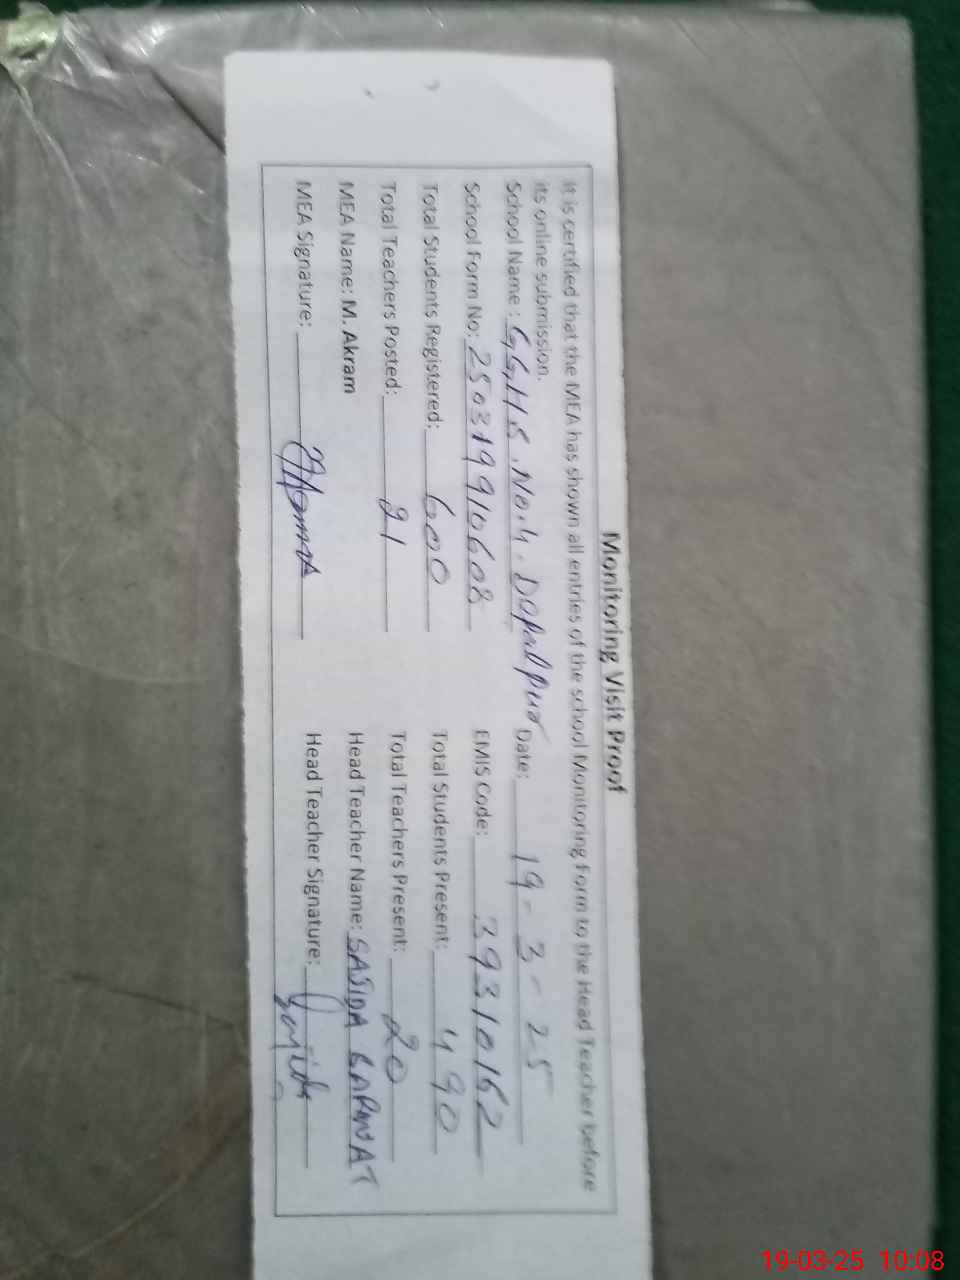 Monitoring Visit Proof
It is certified that the MEA has shown all entries of the school Monitoring Form to the Head Teacher before
its online submission.
School Name : GGHS. No.4. Depalpur Date: 19-3-25
School Form No: 250319910608 EMIS Code: 39310162
Total Students Registered: 600 Total Students Present: 490
Total Teachers Posted: 21 Total Teachers Present: 20
MEA Name: M. Akram Head Teacher Name: SAJIDA
MEA Signature: Head Teacher Signature: Sajida
19-03-25 10:08